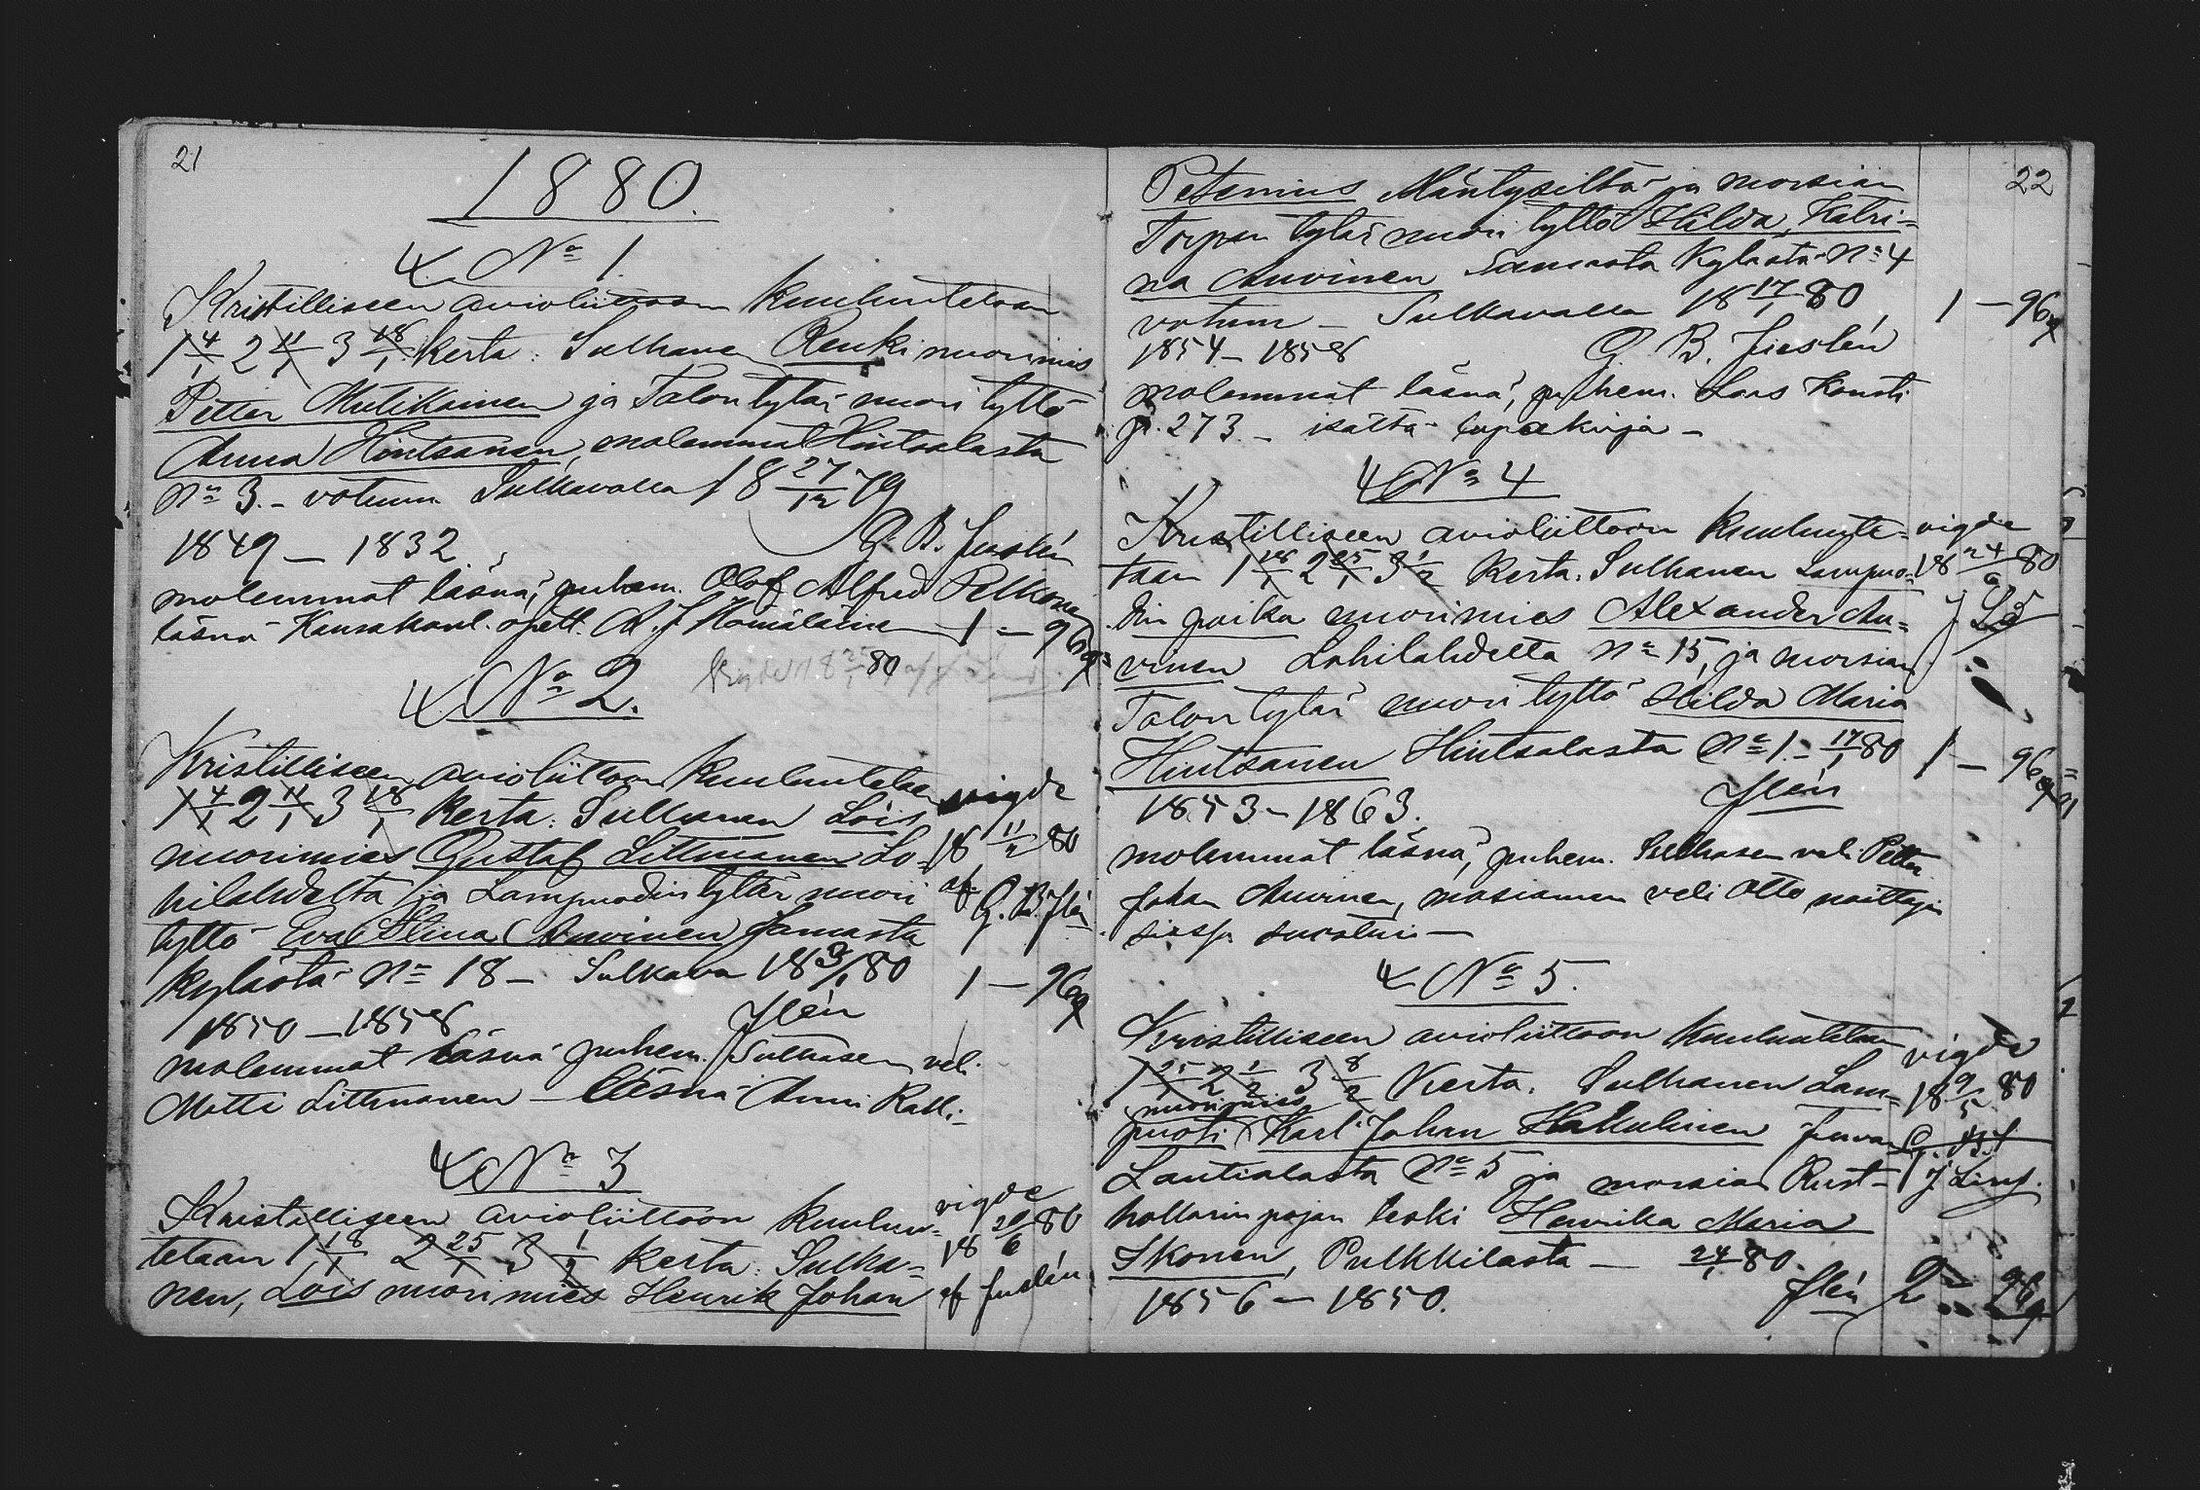 21
1880.
4 No 1.
Kristilliseen avioliittoon kuulutetaan
1 4/1 2 11/1 3 18/1 kerta: Sulhanen Renki nuorimies
Petter Mutikainen ja Talon tytär nuori tyttö
Anna Hintsanen, molemmat Hintsalasta
No 3. - votum Sulkavalla 18 27/12 79
G. B. Juslén
1849 - 1832
molemmat läsnä, puhem. Olof Alfred Pelkonen
läsnä Kansakoul. opett. A. J. Hämäläinen 1 - 96
18 80
4 No 2.
Kristilliseen avioliittoon kuulutetaan vigde
1 4/1 2 11/1 3 18/1 kerta: Sulhanen Lois 18 11/2 80
nuorimies Gustaf Littmanen Lo- af
hilahdelta ja Lampuodin tytär nuori G. B. Jlén
tyttö Eva Stina Auvinen samasta
kylästä No 18 - Sulkava 18 3/1 80 1 - 96
1850 - 1858 Jlén
molemmat läsnä puhem. Sulhasen veli
Matti Littmanen - läsnä Anni
4 No 3
Kristilliseen avioliittoon kuulu= vigde
tetaan 1 18/1 2 25/1 3 1/2 kerta: Sulha= 18 20/6 80
nen, Lois nuorimies Henrik Johan af Juslén
22
Petsenius Mäntysiltä ja morsian
Torpan tytär nuori tyttö Hilda Katri=
na Auvinen samasta kylästä No 4
votum - Sulkavalla 18 17/1 80, 1 - 96
1854 - 1858 G. B. Juslén
molemmat läsnä, puhem. Lars Konsti
p. 273 - isältä lupakirja -
4 No 4
Kristilliseen avioliittoon kuulute= vigde
taan 1 18/1 2 25/1 3 1/2 kerta: Sulhanen Lampuo= 18 80
din poika nuorimies Alexander Au=
vinen Lohilahdelta No 15, ja morsian
Talon tytär nuori tyttö Hilda Maria
Hintsanen Hintsalasta No 1. - 17/1 80 1 - 96
1853 - 1863. Jlén
molemmat läsnä, puhem. Sulhasen veli Petter
Johan Auvinen, morsiamen veli Otto naittajan
siassa suostui -
4 No 5.
Kristilliseen avioliittoon kuulutetaan vigde
1 25/1 2 1/2 3 8/2 kerta. Sulhanen Lam= 18 9/5 80
nuorimies
puoti Karl Johan Hakulinen Juvan
Lautialasta No 5 ja morsian Rust-
hollarin pojan leski Henrika Maria
Ikonen, Pulkkilasta - 24/1 80.
1856 - 1850. Jlén 2 - 96